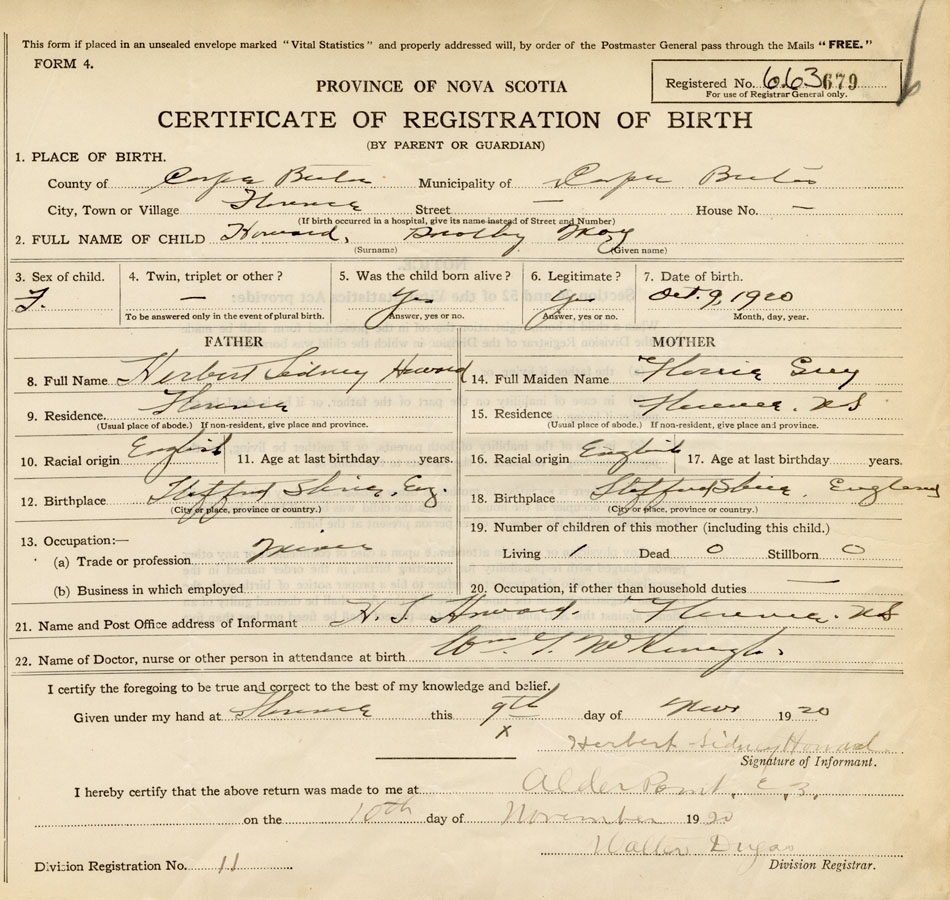 This form if placed in an unsealed envelope marked "Vital Statistics" and properly addressed will, by order of the Postmaster General pass through the Mails "FREE."
FORM 4.
Registered No. 663679
For use of Registrar General only.
PROVINCE OF NOVA SCOTIA
CERTIFICATE OF REGISTRATION OF BIRTH
(BY PARENT OR GUARDIAN)
1. PLACE OF BIRTH.
County of Cape Breton Municipality of Cape Breton
City, Town or Village Florence Street — House No. —
(If birth occurred in a hospital, give its name instead of Street and Number)
2. FULL NAME OF CHILD Howard, Dorothy May
(Surname) (Given name)
3. Sex of child. 4. Twin, triplet or other? 5. Was the child born alive? 6. Legitimate? 7. Date of birth.
F. — Yes Yes Oct. 9, 1920
To be answered only in the event of plural birth. Answer, yes or no. Answer, yes or no. Month, day, year.
FATHER MOTHER
8. Full Name Herbert Sidney Howard 14. Full Maiden Name Florrie Grey
9. Residence. Florence 15. Residence Florence. N S
(Usual place of abode.) If non-resident, give place and province. (Usual place of abode.) If non-resident, give place and province.
10. Racial origin English 11. Age at last birthday years. 16. Racial origin English 17. Age at last birthday years.
12. Birthplace Staffordshire, Eng. 18. Birthplace Staffordshire, England
(City or place, province or country.) (City or place, province or country.)
19. Number of children of this mother (including this child.)
13. Occupation:—
(a) Trade or profession Miner Living 1 Dead 0 Stillborn 0
(b) Business in which employed 20. Occupation, if other than household duties —
21. Name and Post Office address of Informant H. S. Howard. Florence. N S
22. Name of Doctor, nurse or other person in attendance at birth Wm.
I certify the foregoing to be true and correct to the best of my knowledge and belief.
Given under my hand at Florence this 9th day of Nov 1920
x
Herbert Sidney Howard
Signature of Informant.
I hereby certify that the above return was made to me at Alder Point, C.B.,
on the 10th day of November 1920
Walter Dugas
Division Registration No. 11 Division Registrar.